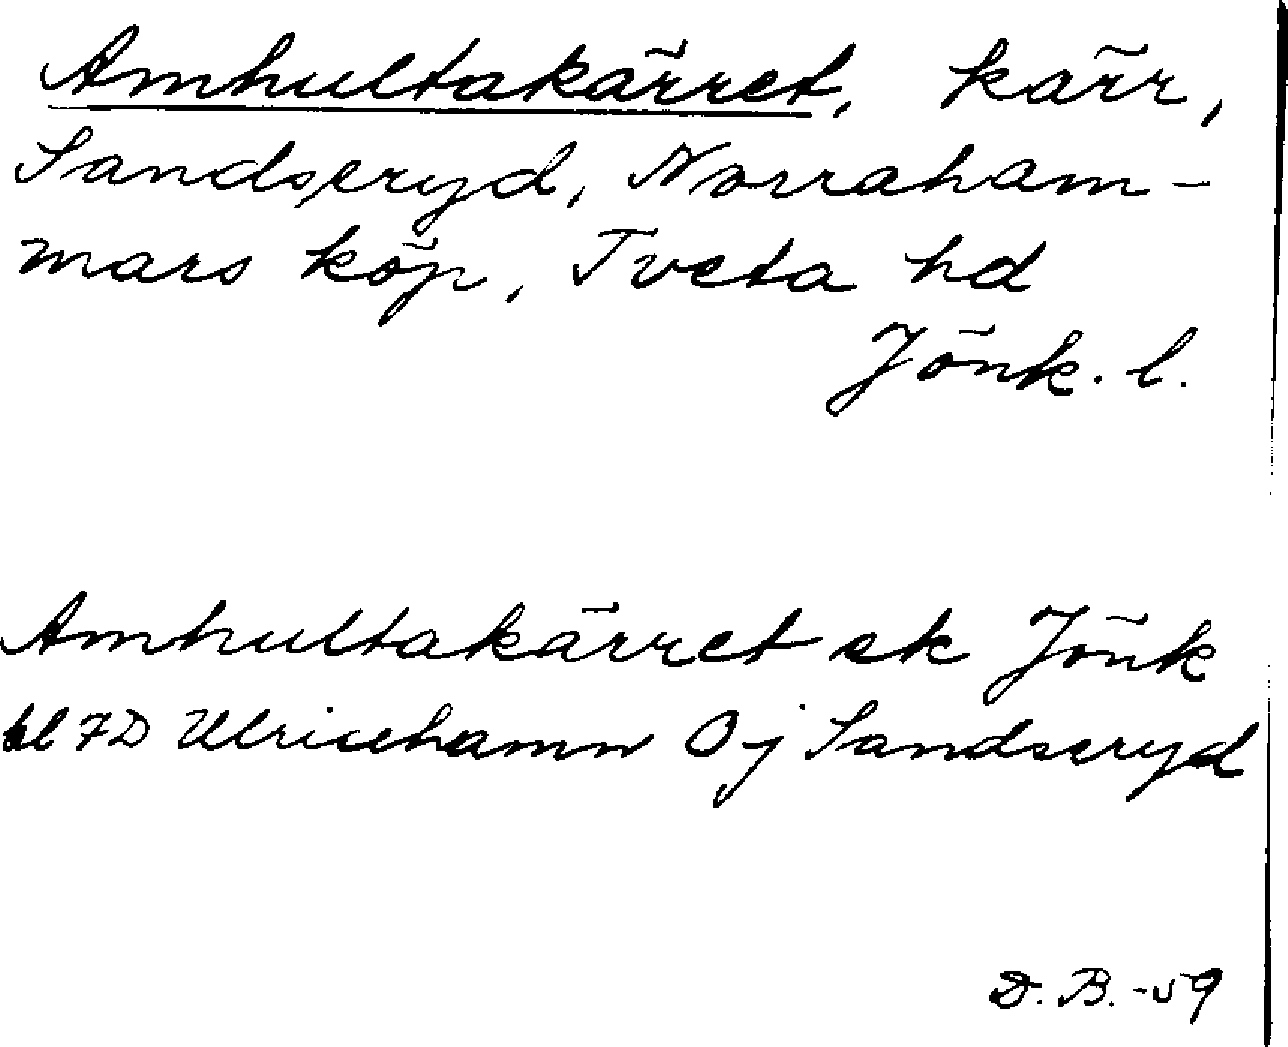 Amhultakärret, kärr,
Sandseryd, Norraham-
mars köp, Tveta hd
Jönk. l.
Amhultakärret ek Jönk
bl 7D Ulricehamn Oj Sandseryd
D. B. -59